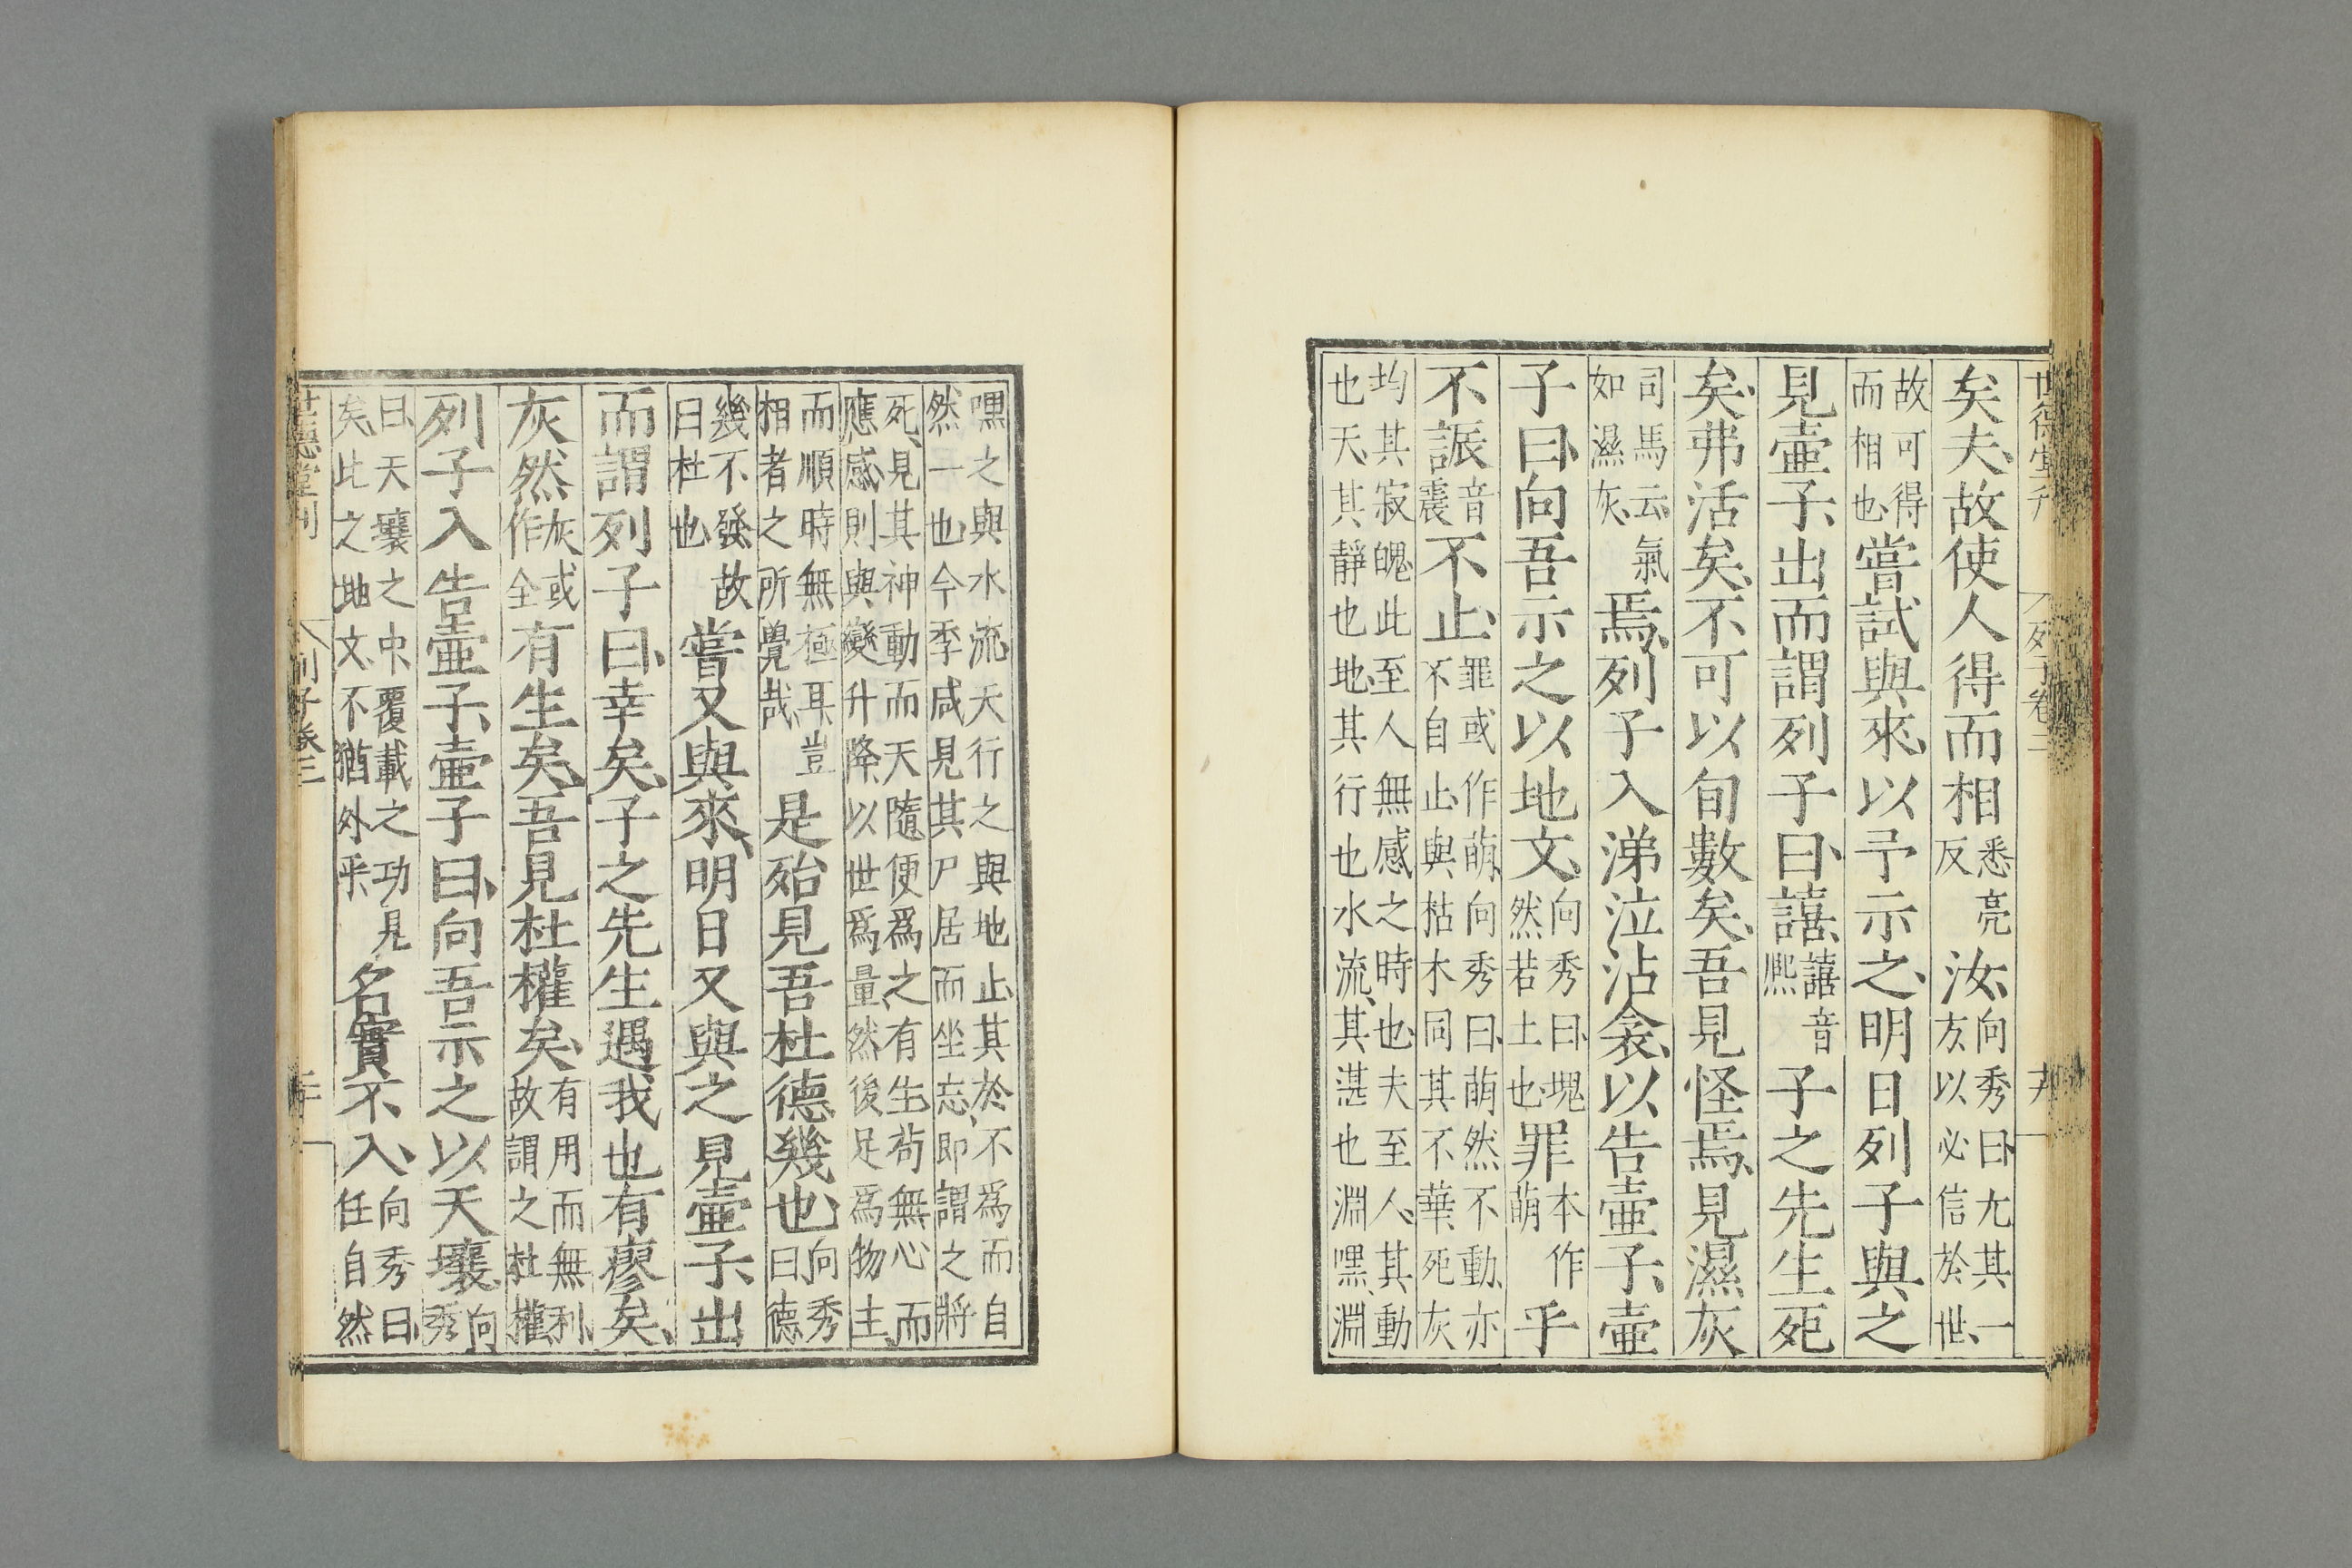 世德堂刊
列子卷二
十九
矣夫故使人得而相悉亮反汝向秀曰亢其一方以必信於世
故可得而相也嘗試與來以予示之明日列子與之
見壺子出而謂列子曰譆譆音熈子之先生死
矣弗活矣不可以旬數矣吾見怪焉見濕灰
司馬云氣如濕灰焉列子入涕泣沾衾以告壺子壺
子曰向吾示之以地文向秀曰塊然若土也罪本作萌乎
不誫音震不止罪或作萌向秀曰萌然不動亦不自止與枯木同其不華死灰
均其寂魄此至人無感之時也夫至人其動也天其靜也地其行也水流其湛也淵嘿淵
嘿之與水流天行之與地止其於不爲而自然一也今季咸見其尸居而坐忘即謂之將
死見其神動而天隨便爲之有生苟無心而應感則與變升降以世爲量然後足爲物主
而順時無極耳豈相者之所覺哉是殆見吾杜德幾也向秀曰德
幾不發故曰杜也嘗又與來明日又與之見壺子出
而謂列子曰幸矣子之先生遇我也有瘳矣
灰然灰或作全有生矣吾見杜權矣有用而無利故謂之杜權
列子入告壺子壺子曰向吾示之以天壤向秀
曰天壤之中覆載之功見矣此之地文不猶外乎名實不入向秀曰任自然
世德堂刊
列子卷二
二十